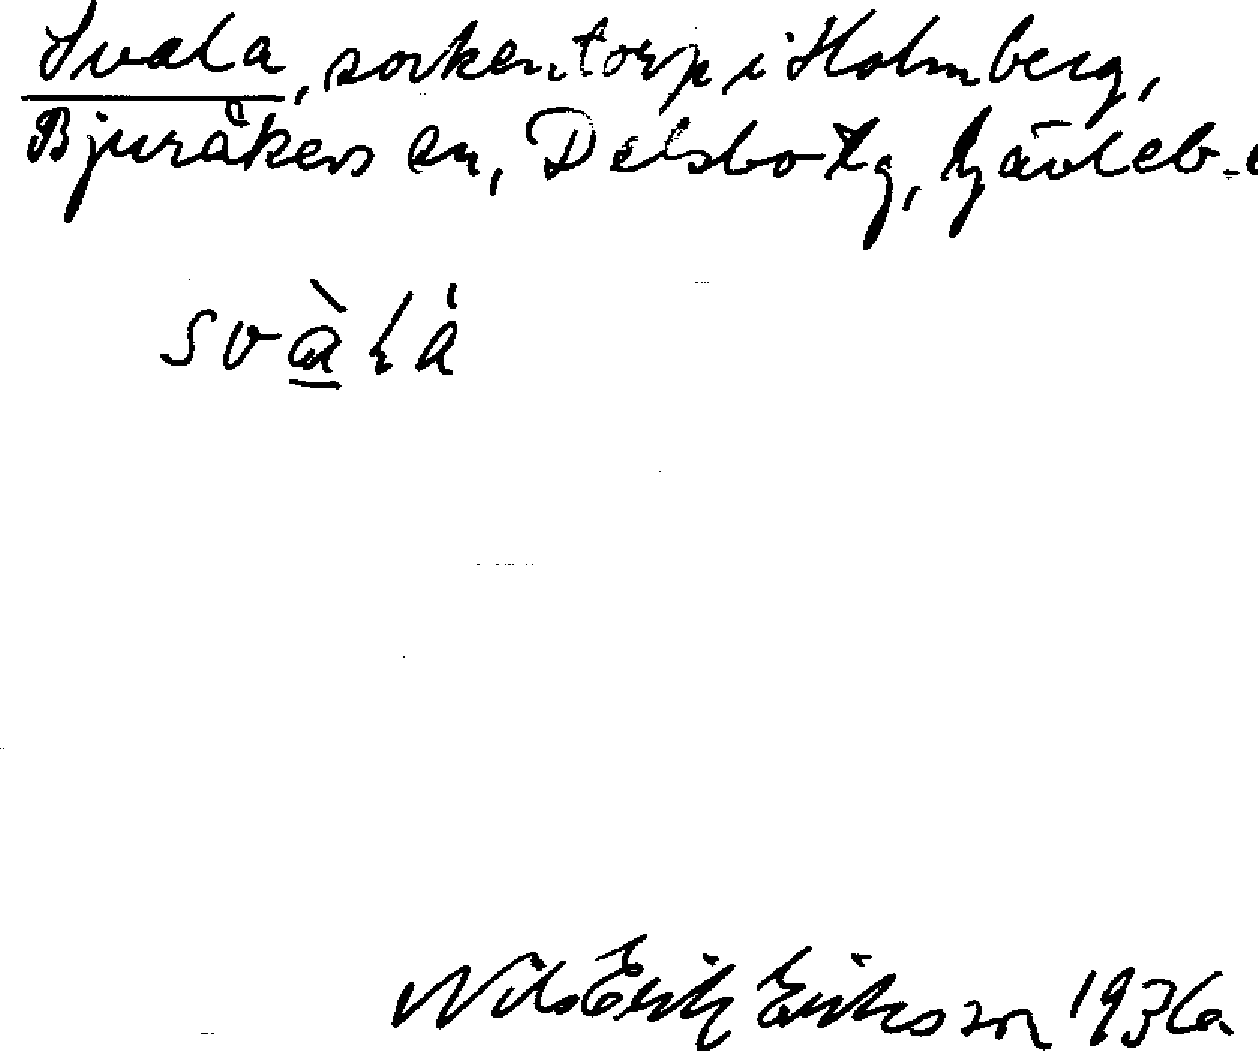 Svala, sockentorp i Holmberg,
Bjuråkers sn, Delsbo tg, Gävleb.
svàlá
Nils Erik Eriksson 1936